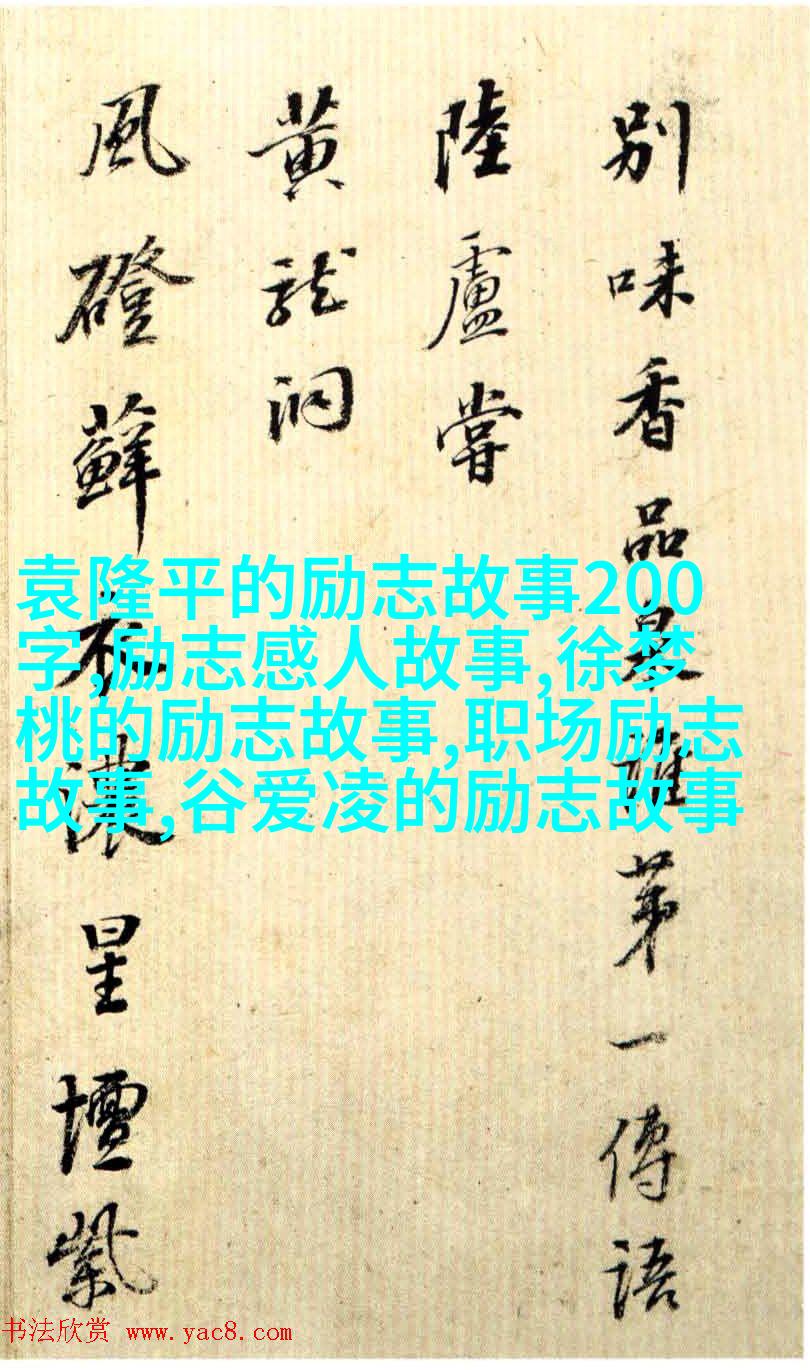 别味香品最谁第一傳語
陸盧嘗
黄龙洞
風磴蘚衣濃星壇紫
袁隆平的励志故事200
字,励志感人故事,徐梦
桃的励志故事,职场励志
故事,谷爱凌的励志故事
书法欣赏 www.yac8.com